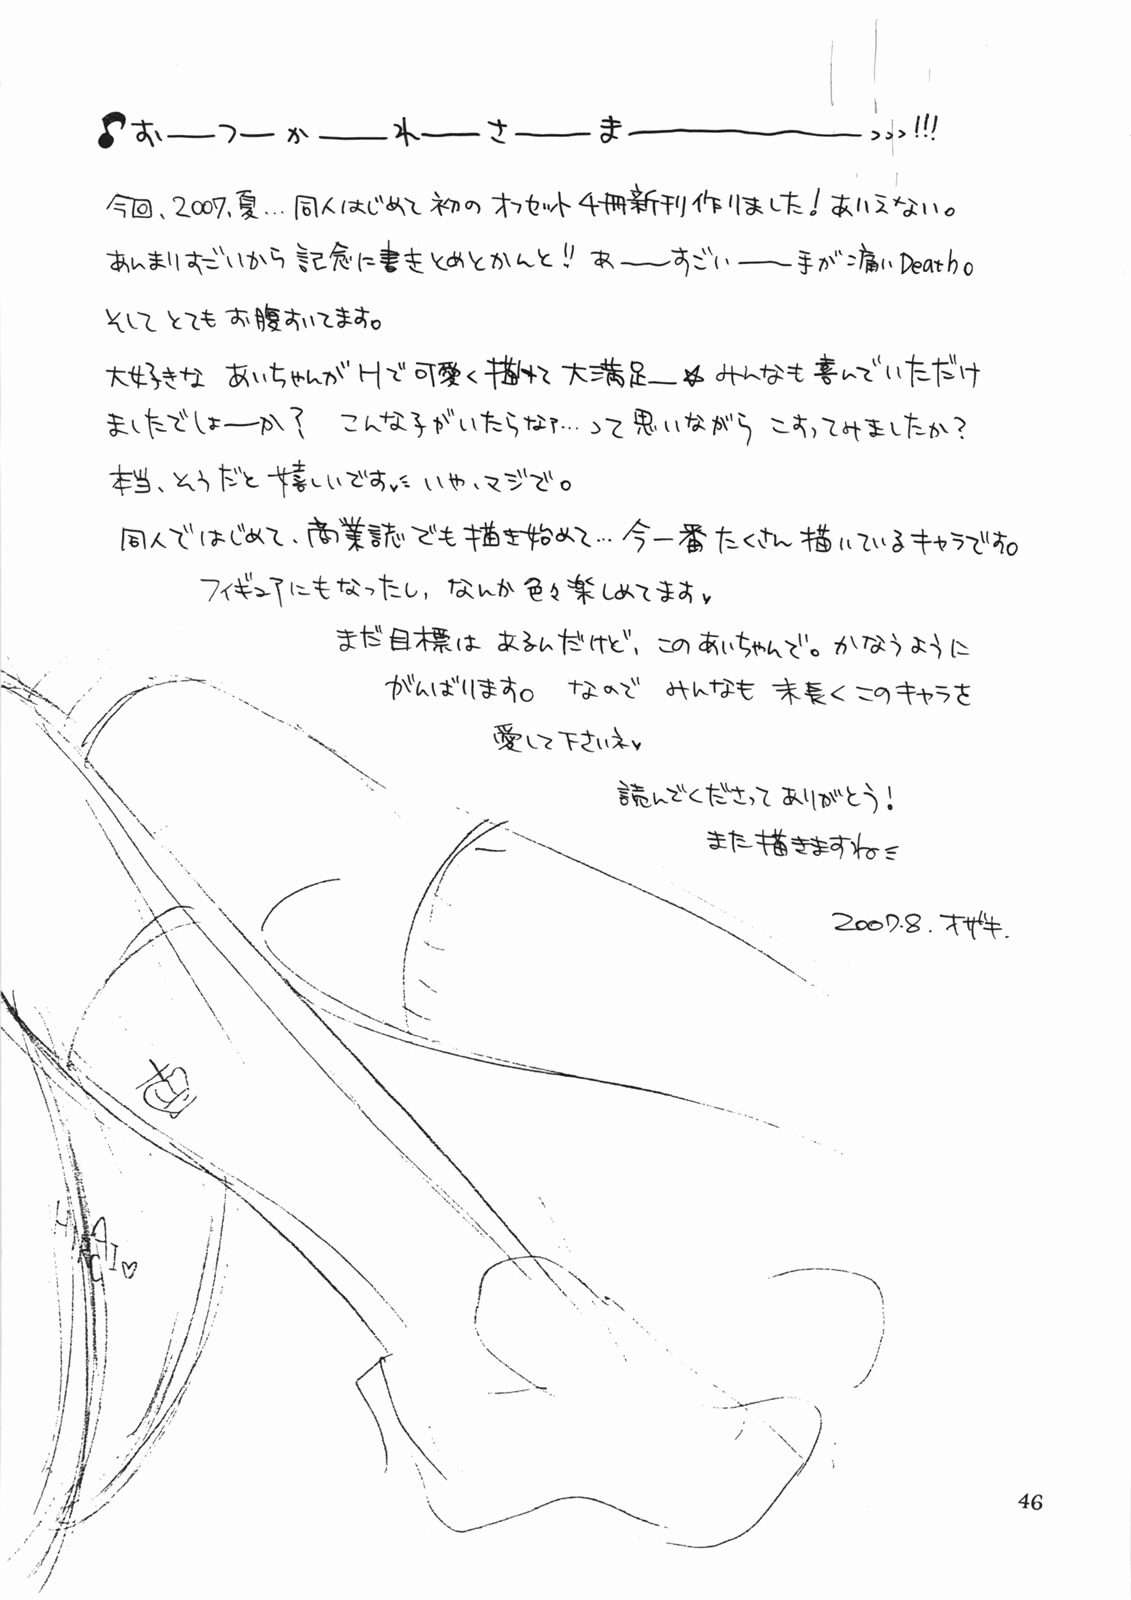 ♪お——つ—か——れ——さ——ま————>>>!!!
今回、2007、夏…同人はじめて初のオフセット4冊新刊作りました！ありえない。
あんまりすごいから記念に書きとめとかんと!!あ——すごい——手が痛いDeath。
そしてとてもお腹すいてます。
大好きなあいちゃんがHで可愛く描けて大満足—☆みんなも喜んでいただけ
ましたでしょーか？こんな子がいたらなァ…って思いながらこすってみましたか？
本当、そうだと嬉しいです♥いや、マジで。
同人ではじめて、商業誌でも描き始めて…今一番たくさん描いているキャラです。
フィギュアにもなったし、なんか色々楽しめてます♥
まだ目標はあるんだけど、このあいちゃんで。かなうように
がんばります。なのでみんなも末長くこのキャラを
愛して下さいネ♥
読んでくださってありがとう！
また描きますね
2007.8.オザキ.
46